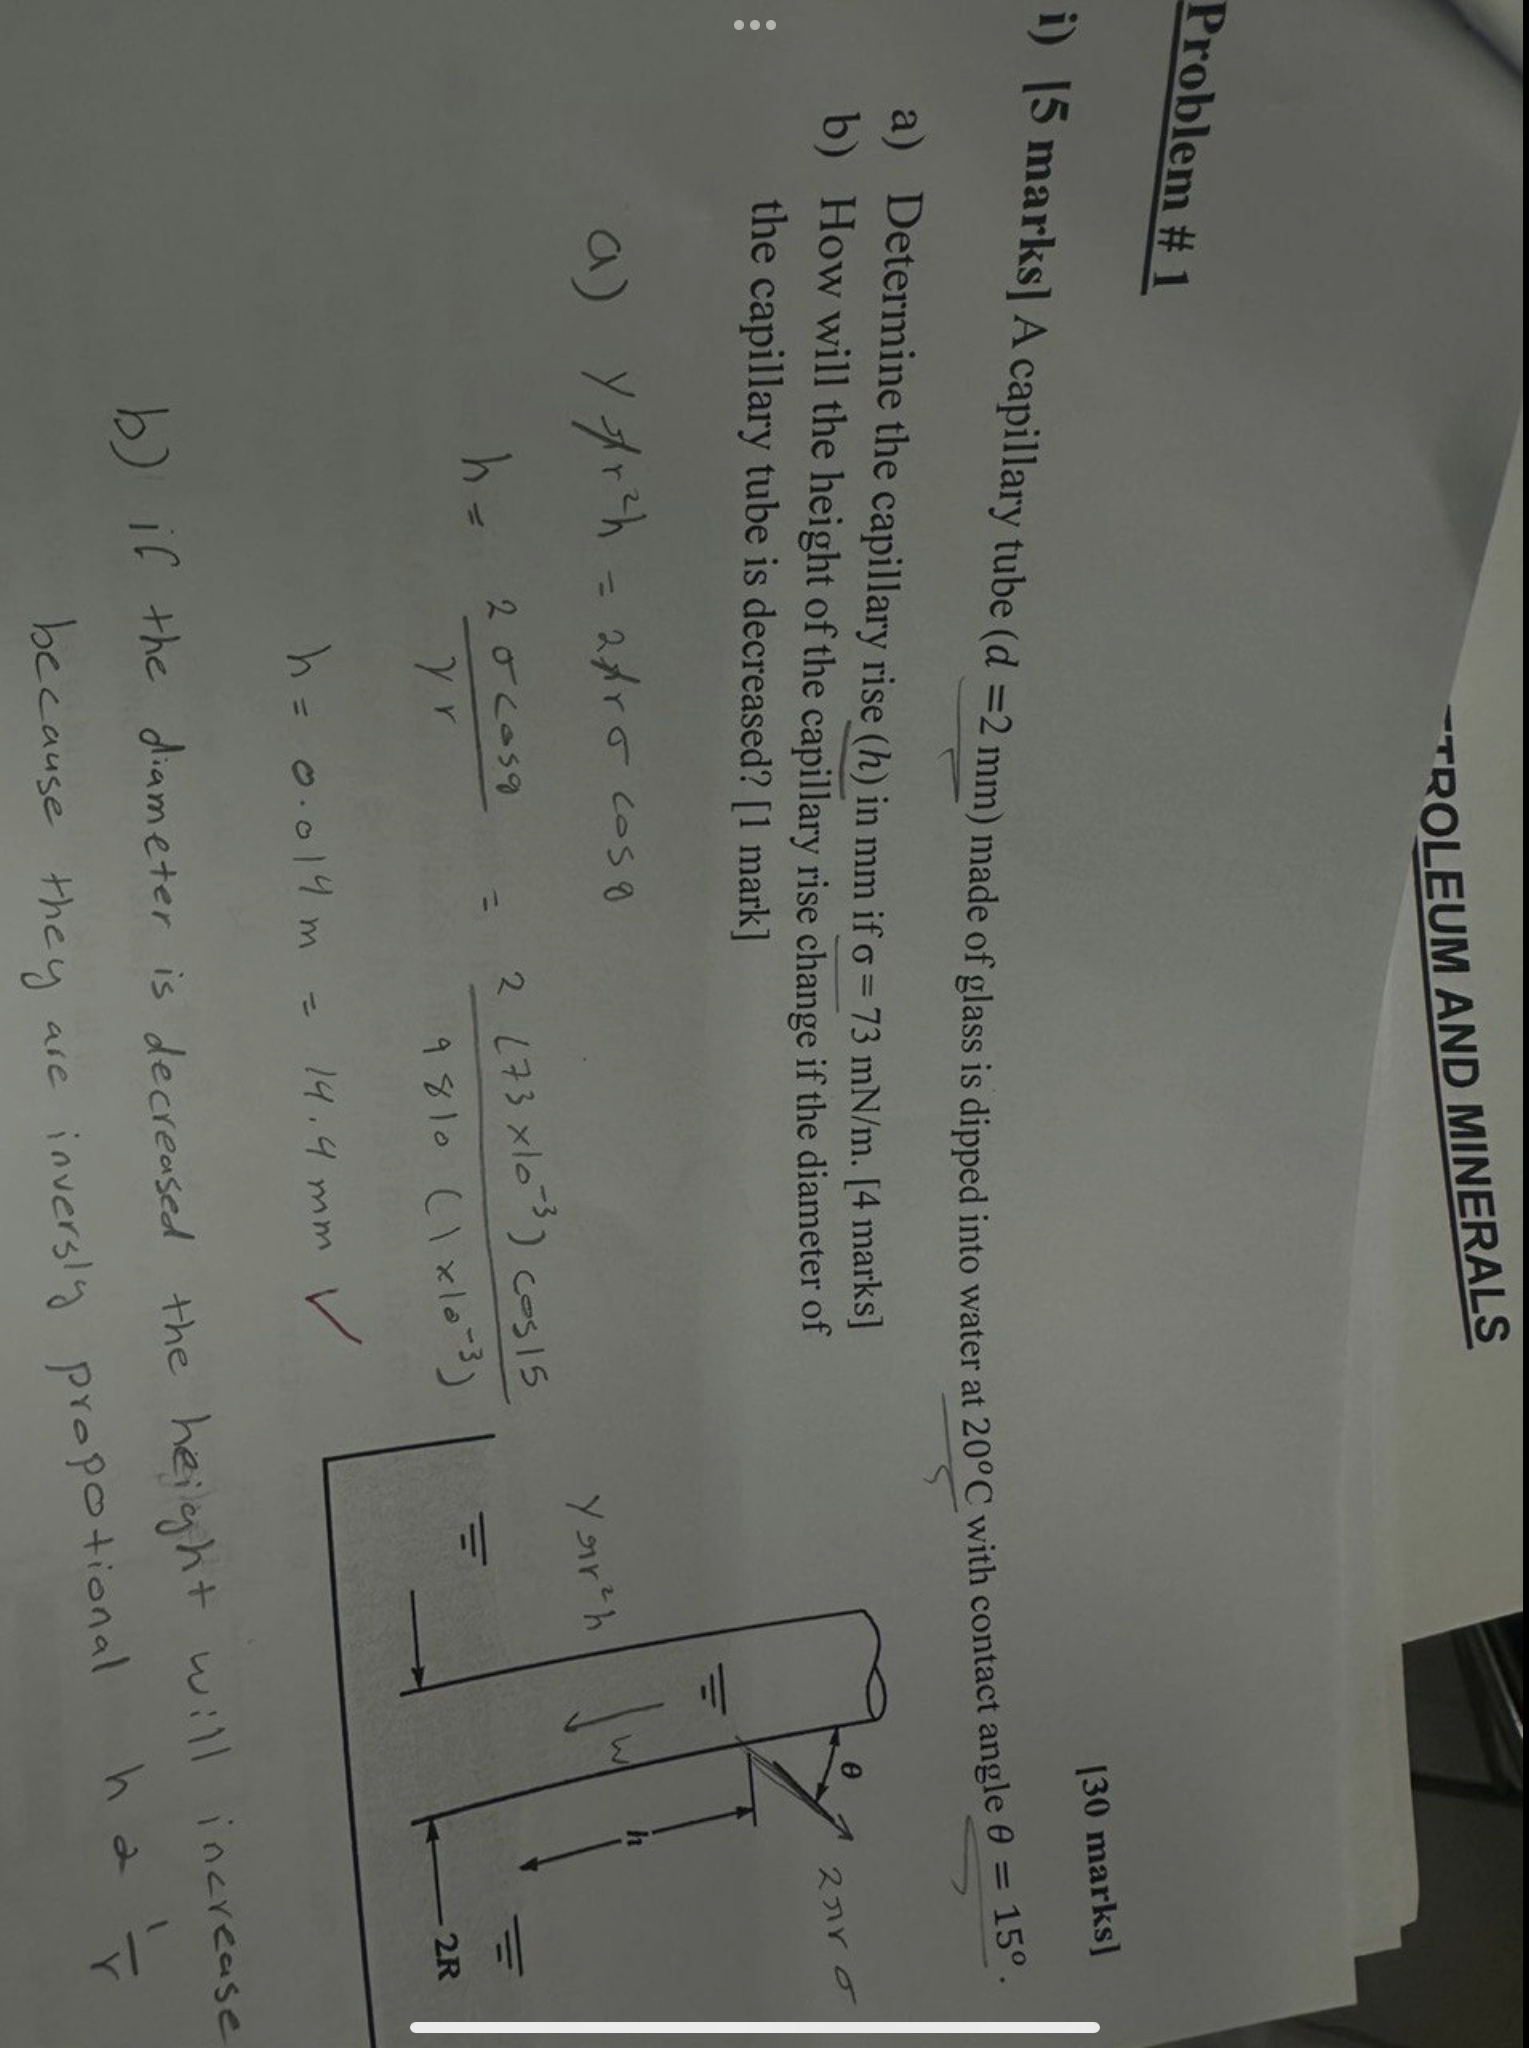 TROLEUM AND MINERALS
[30 marks]
Problem # 1
i) [5 marks] A capillary tube (d =2 mm) made of glass is dipped into water at 20°C with contact angle θ = 15°.
a) Determine the capillary rise (h) in mm if σ = 73 mN/m. [4 marks]
b) How will the height of the capillary rise change if the diameter of
the capillary tube is decreased? [1 mark]
a) γ πr²h = 2πrσ cosθ
h = 2σcosθ / γr = 2(73×10⁻³)cos15 / 9810(1×10⁻³)
h = 0.014 m = 14.4 mm ✓
θ
2πrσ
γπr²h
W
h
2R
b) if the diameter is decreased the height will increase
because they are inversly propotional h α 1/r